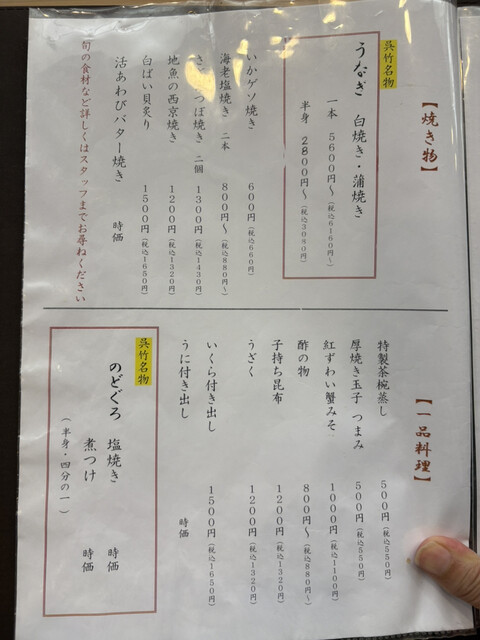 【焼き物】
呉竹名物
うなぎ 白焼き・蒲焼き
一本 5600円~(税込6160円~)
半身 2800円~(税込3080円~)
いかゲソ焼き 600円(税込660円)
海老塩焼き 二本 800円~(税込880円~)
さざえつぼ焼き 二個 1300円(税込1430円)
地魚の西京焼き 1200円(税込1320円)
白ばい貝炙り 1500円(税込1650円)
活あわびバター焼き 時価
旬の食材など詳しくはスタッフまでお尋ねください
【一品料理】
特製茶椀蒸し 500円(税込550円)
厚焼き玉子 つまみ 500円(税込550円)
紅ずわい蟹みそ 1000円(税込1100円)
酢の物 800円~(税込880円~)
子持ち昆布 1200円(税込1320円)
うざく 1200円(税込1320円)
いくら付き出し 1500円(税込1650円)
うに付き出し 時価
呉竹名物
のどぐろ 塩焼き 時価
煮つけ 時価
(半身・四分の一)